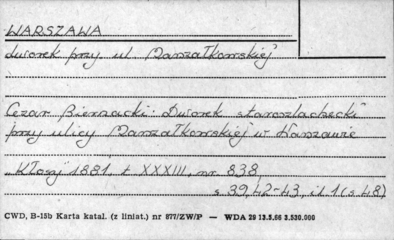 WARSZAWA
dworek przy ul. Marszałkowskiej
Cezar Biernacki: "Dworek staroszlachecki"
przy ulicy Marszałkowskiej w Warszawie
"Kłosy" 1881, t. XXXIII, nr. 838,
s. 39, 42-43, il. 1 (s. 48)
CWD, B-15b Karta katal. (z liniat.) nr 877/ZW/P — WDA 29 13.5.66 3.530.000